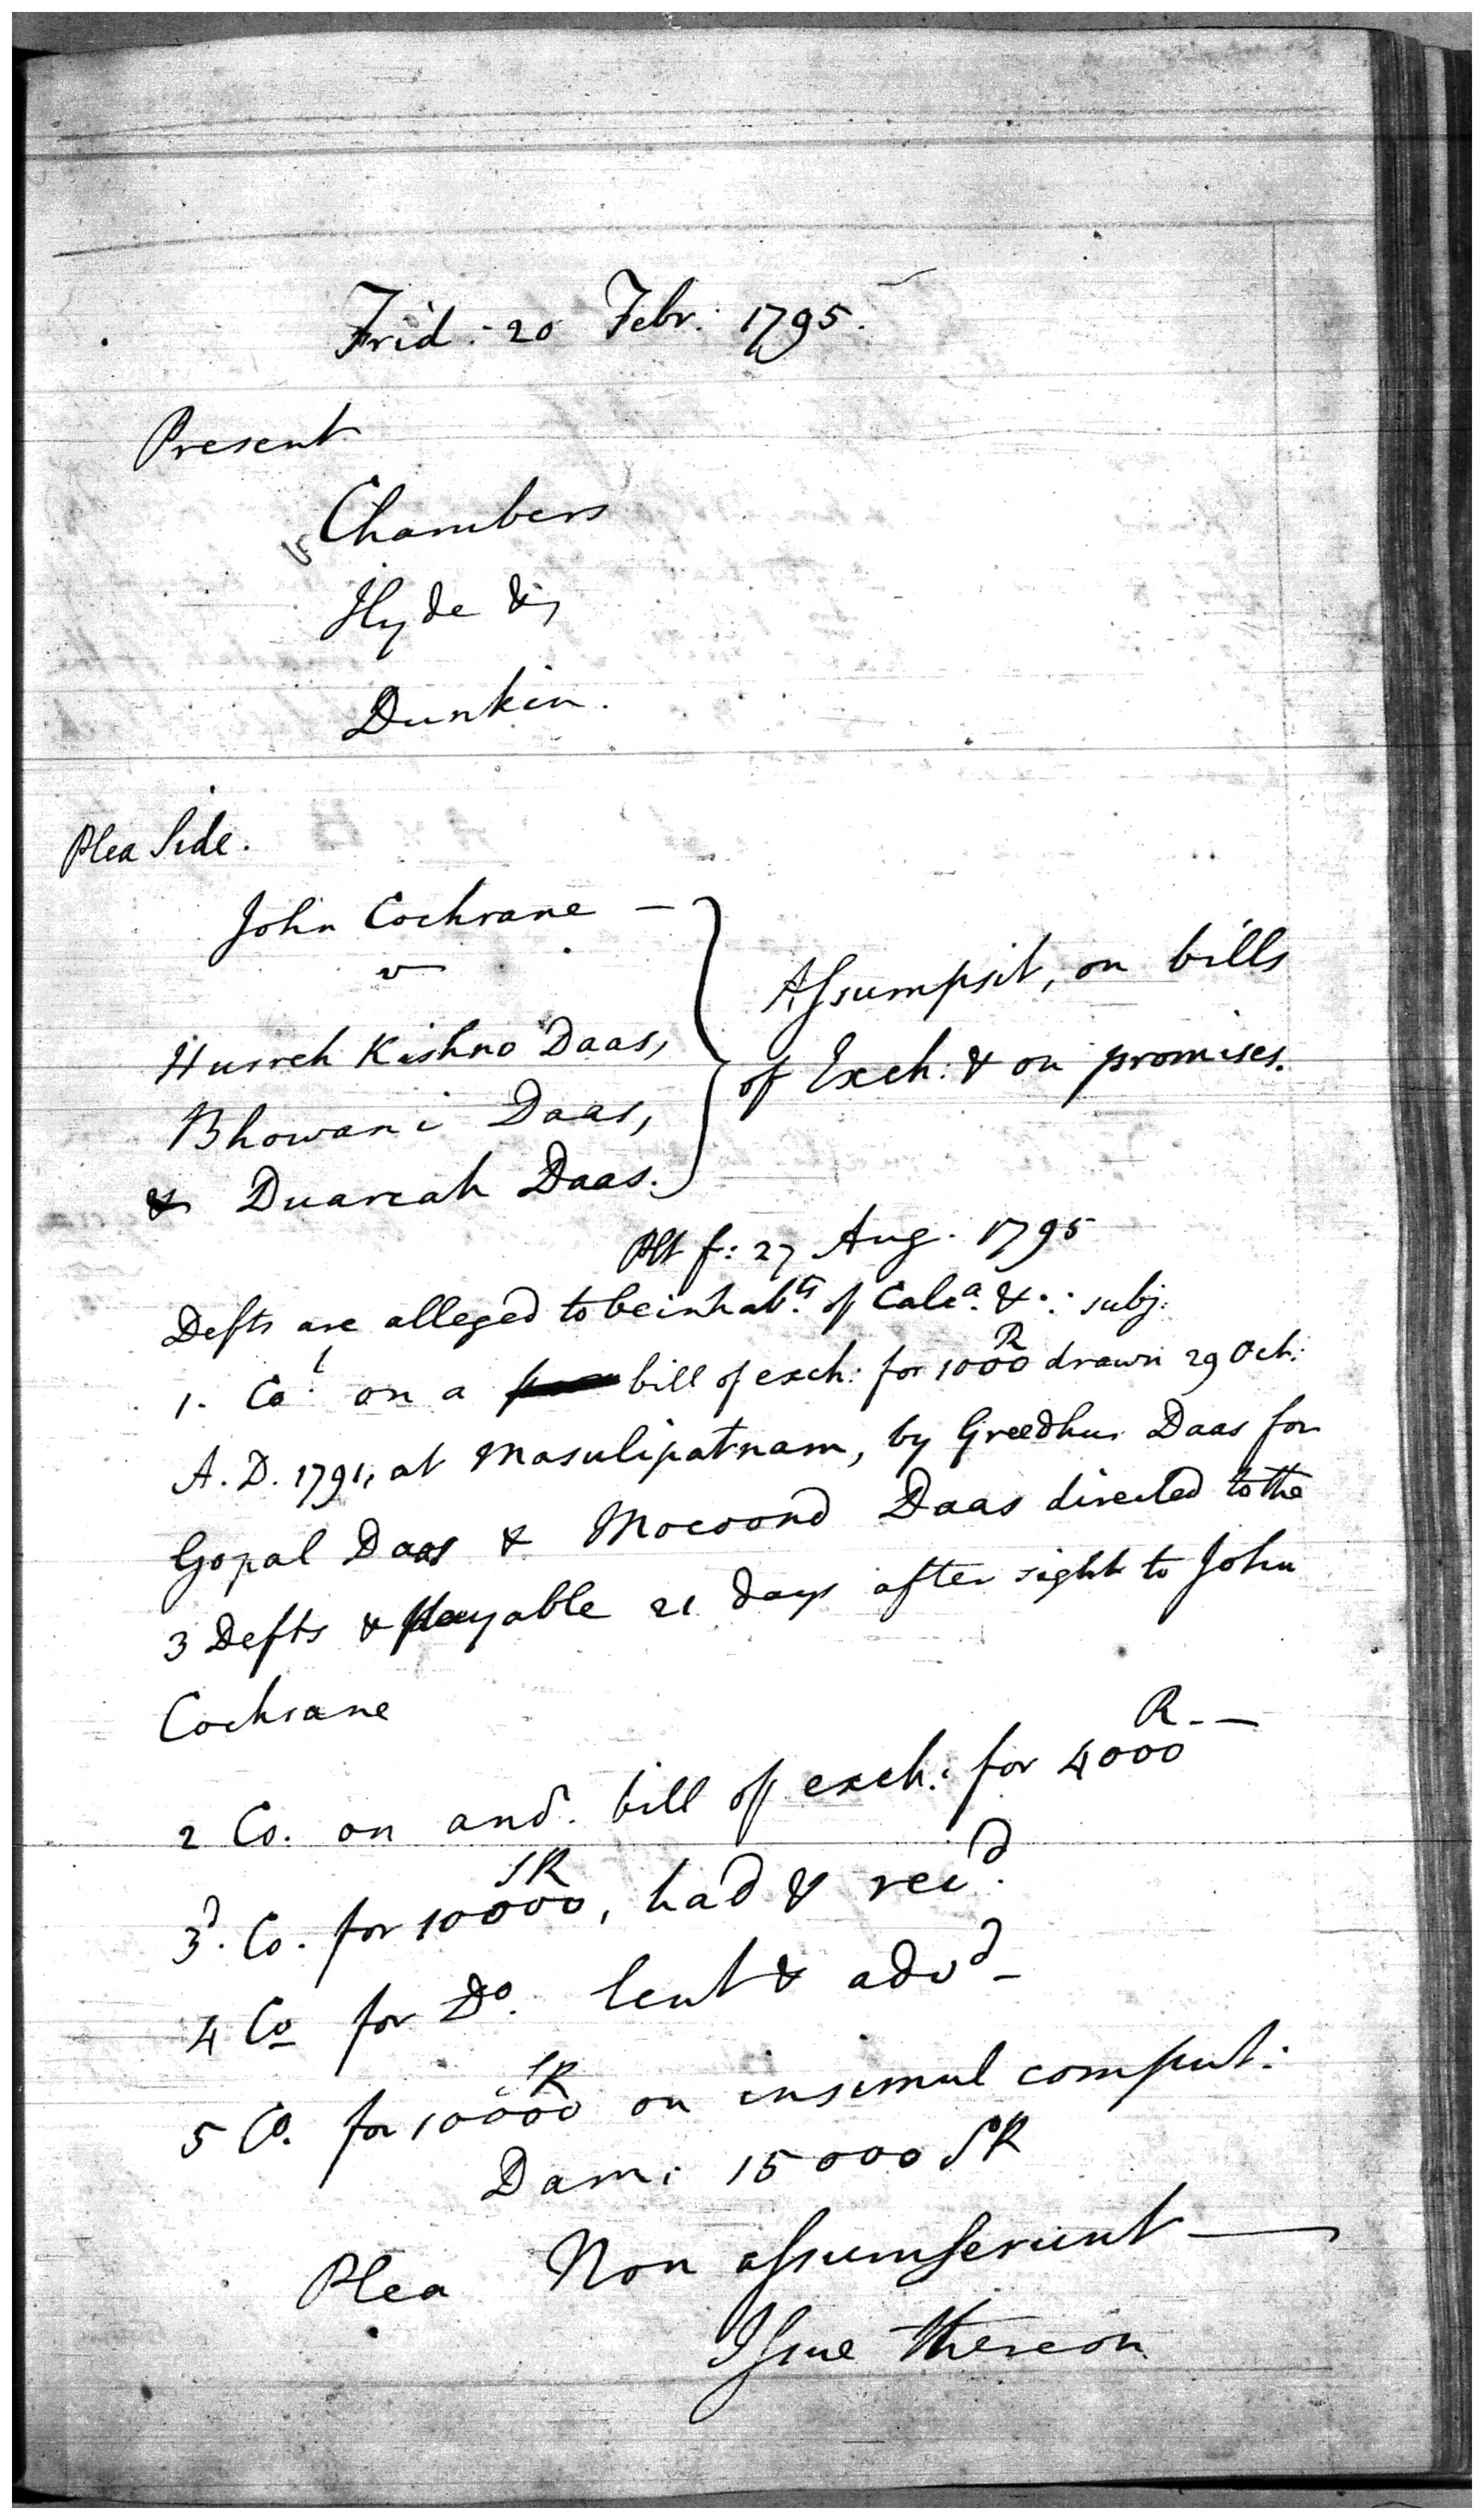 Frid: 20 Febr: 1795.
Present
Chambers
Hyde &
Dunkin.
Plea Side.
John Cochrane —
v
Hurreh Kishno Daas,
Bhowani Daas,
& Duarcah Daas.
Assumpsit, on bills
of Exch: & on promises.
Plt f: 27 Aug. 1795
Defts are alleged to be inhab.ts of Calc.a & ∴ subj:
1. Co.t on a bill of exch: for 1000 R drawn 29 Oct:
A. D. 1791, at Masulipatnam, by Greedhur Daas for
Gopal Daas & Mocoond Daas directed to the
3 Defts & payable 21 days after sight to John
Cochrane
2 Co. on and. bill of exch: for 4000 R —
3d. Co. for 10000 SR, had & recd.
4 Co for Do. lent & advd —
5 Co. for 10000 SR on insimul comput:
Dam: 15000 SR
Plea Non assumserunt —
Issue thereon